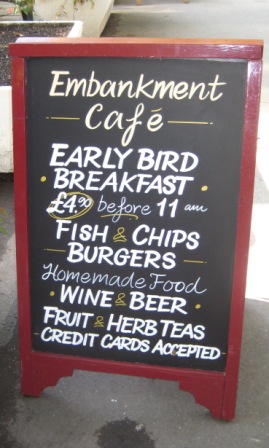 Embankment
Café
EARLY BIRD
BREAKFAST
£4.90 before 11 am
FISH & CHIPS
BURGERS
Homemade Food
WINE & BEER
FRUIT & HERB TEAS
CREDIT CARDS ACCEPTED